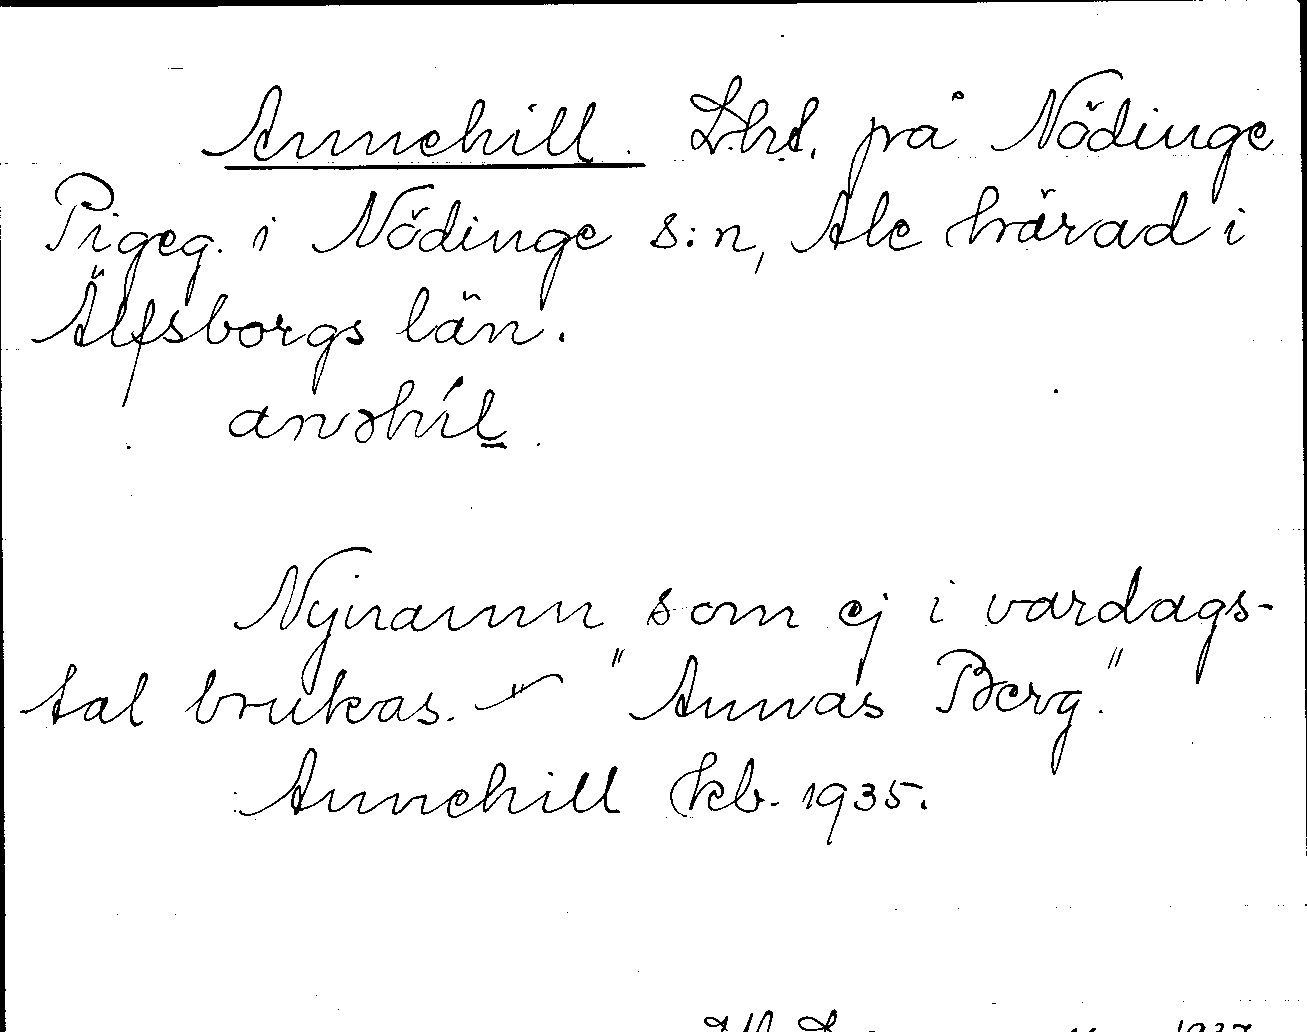 Annehill. Lht. på Nödinge
Pigeg. i Nödinge s:n, Ale härad i
Älfsborgs län.
anəhíl
Nynamn som ej i vardags-
tal brukas. – " "Annas Berg."
Annehill kb. 1935.
1937